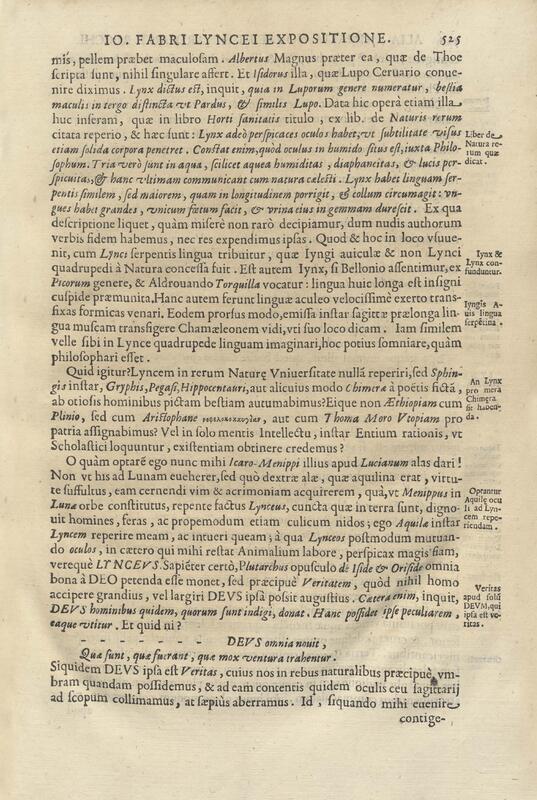 IO. FABRI LYNCEI EXPOSITIONE. 525
mis, pellem præbet maculosam. Albertus Magnus præter ea, quæ de Thoe
scripta sunt, nihil singulare affert. Et Isidorus illa, quæ Lupo Ceruario conue-
nire diximus. Lynx dictus est, inquit, quia in Luporum genere numeratur, bestia
maculis in tergo distincta vt Pardus, & similis Lupo. Data hic operà etiam illa
huc inseram, quæ in libro Horti sanitatis titulo, ex lib. de Naturis rerum
citata reperio, & hæc sunt: Lynx adeò perspicaces oculos habet, vt subtilitate visus
etiam solida corpora penetret. Constat enim, quòd oculus in humido situs est, iuxta Philo-
sophum. Tria verò sunt in aqua, scilicet aquea humiditas, diaphancitas, & lucis per-
spicuitas, & hanc vltimam communicant cum natura cælesti. Lynx habet linguam ser-
pentis similem, sed maiorem, quam in longitudinem porrigit, & collum circumagit: vn-
gues habet grandes, vnicum fœtum facit, & vrina eius in gemmam durescit. Ex qua
descriptione liquet, quàm miserè non rarò decipiamur, dum nudis authorum
verbis fidem habemus, nec res expendimus ipsas. Quod & hoc in loco vsuue-
nit, cum Lynci serpentis lingua tribuitur, quæ Iyngi auiculæ & non Lynci
quadrupedi à Natura concessa fuit. Est autem Iynx, si Bellonio assentimur, ex
Picorum genere, & Aldrouando Torquilla vocatur: lingua huic longa est insigni
cuspide præmunita. Hanc autem ferunt linguæ aculeo velocissimè exerto trans-
fixas formicas venari. Eodem prorsus modo, emissa instar sagittæ prælonga lin-
gua muscam transfigere Chamæleonem vidi, vti suo loco dicam. Iam similem
velle sibi in Lynce quadrupede linguam imaginari, hoc potius somniare, quàm
philosophari esset.
Quid igitur? Lyncem in rerum Naturę Vniuersitate nullā reperiri, sed Sphin-
gis instar, Gryphis, Pegasi, Hippocentauri, aut alicuius modo Chimeræ à poëtis fictā,
ab otiosis hominibus pictam bestiam autumabimus? Eique non Æthiopiam cum
Plinio, sed cum Aristophane, aut cum Thoma Moro Vtopiam pro
patria assignabimus? Vel in solo mentis Intellectu, instar Entium rationis, vt
Scholastici loquuntur, existentiam obtinere credemus?
O quàm optarē ego nunc mihi Icaro-Menippi illius apud Lucianum alas dari!
Non vt his ad Lunam eueherer, sed quò dextræ alæ, quæ aquilina erat, virtu-
te suffultus, eam cernendi vim & acrimoniam acquirerem, quâ, vt Menippus in
Lunæ orbe constitutus, repente factus Lynceus, cuncta quæ in terra sunt, digno-
uit homines, feras, ac propemodum etiam culicum nidos; ego Aquilæ instar
Lyncem reperire meam, ac intueri queam; à qua Lynceos postmodum mutuan-
do oculos, in cætero qui mihi restat Animalium labore, perspicax magis fiam,
verequè LYNCEVS. Sapiēter certò, Plutarchus opusculo de Iside & Oriside omnia
bona à DEO petenda esse monet, sed præcipuè Veritatem, quòd nihil homo
accipere grandius, vel largiri DEVS ipsa possit augustius. Cætera enim, inquit,
DEVS hominibus quidem, quorum sunt indigi, donat. Hanc possidet ipse peculiarem,
eaque vtitur. Et quid ni?
- - - - - - DEVS omnia nouit,
Quæ sunt, quæ fuerant, quæ mox ventura trahentur.
Siquidem DEVS ipsa est Veritas, cuius nos in rebus naturalibus præcipuè vm-
bram quandam possidemus, & ad eam contentis quidem oculis ceu sagittarij
ad scopum collimamus, at sæpiùs aberramus. Id, siquando mihi euenire
contige-
Liber de
Natura re-
rum quæ
dicat.
Iynx &
Lynx con-
funduntur.
Iyngis A-
uis lingua
serpētina.
An Lynx
pro mera
Chimera
sit haben-
da.
Optantur
Aquilę ocu
li ad Lyn-
cem repe-
riendam.
Veritas
apud solū
DEVM, qui
ipsa est ve-
ritas.